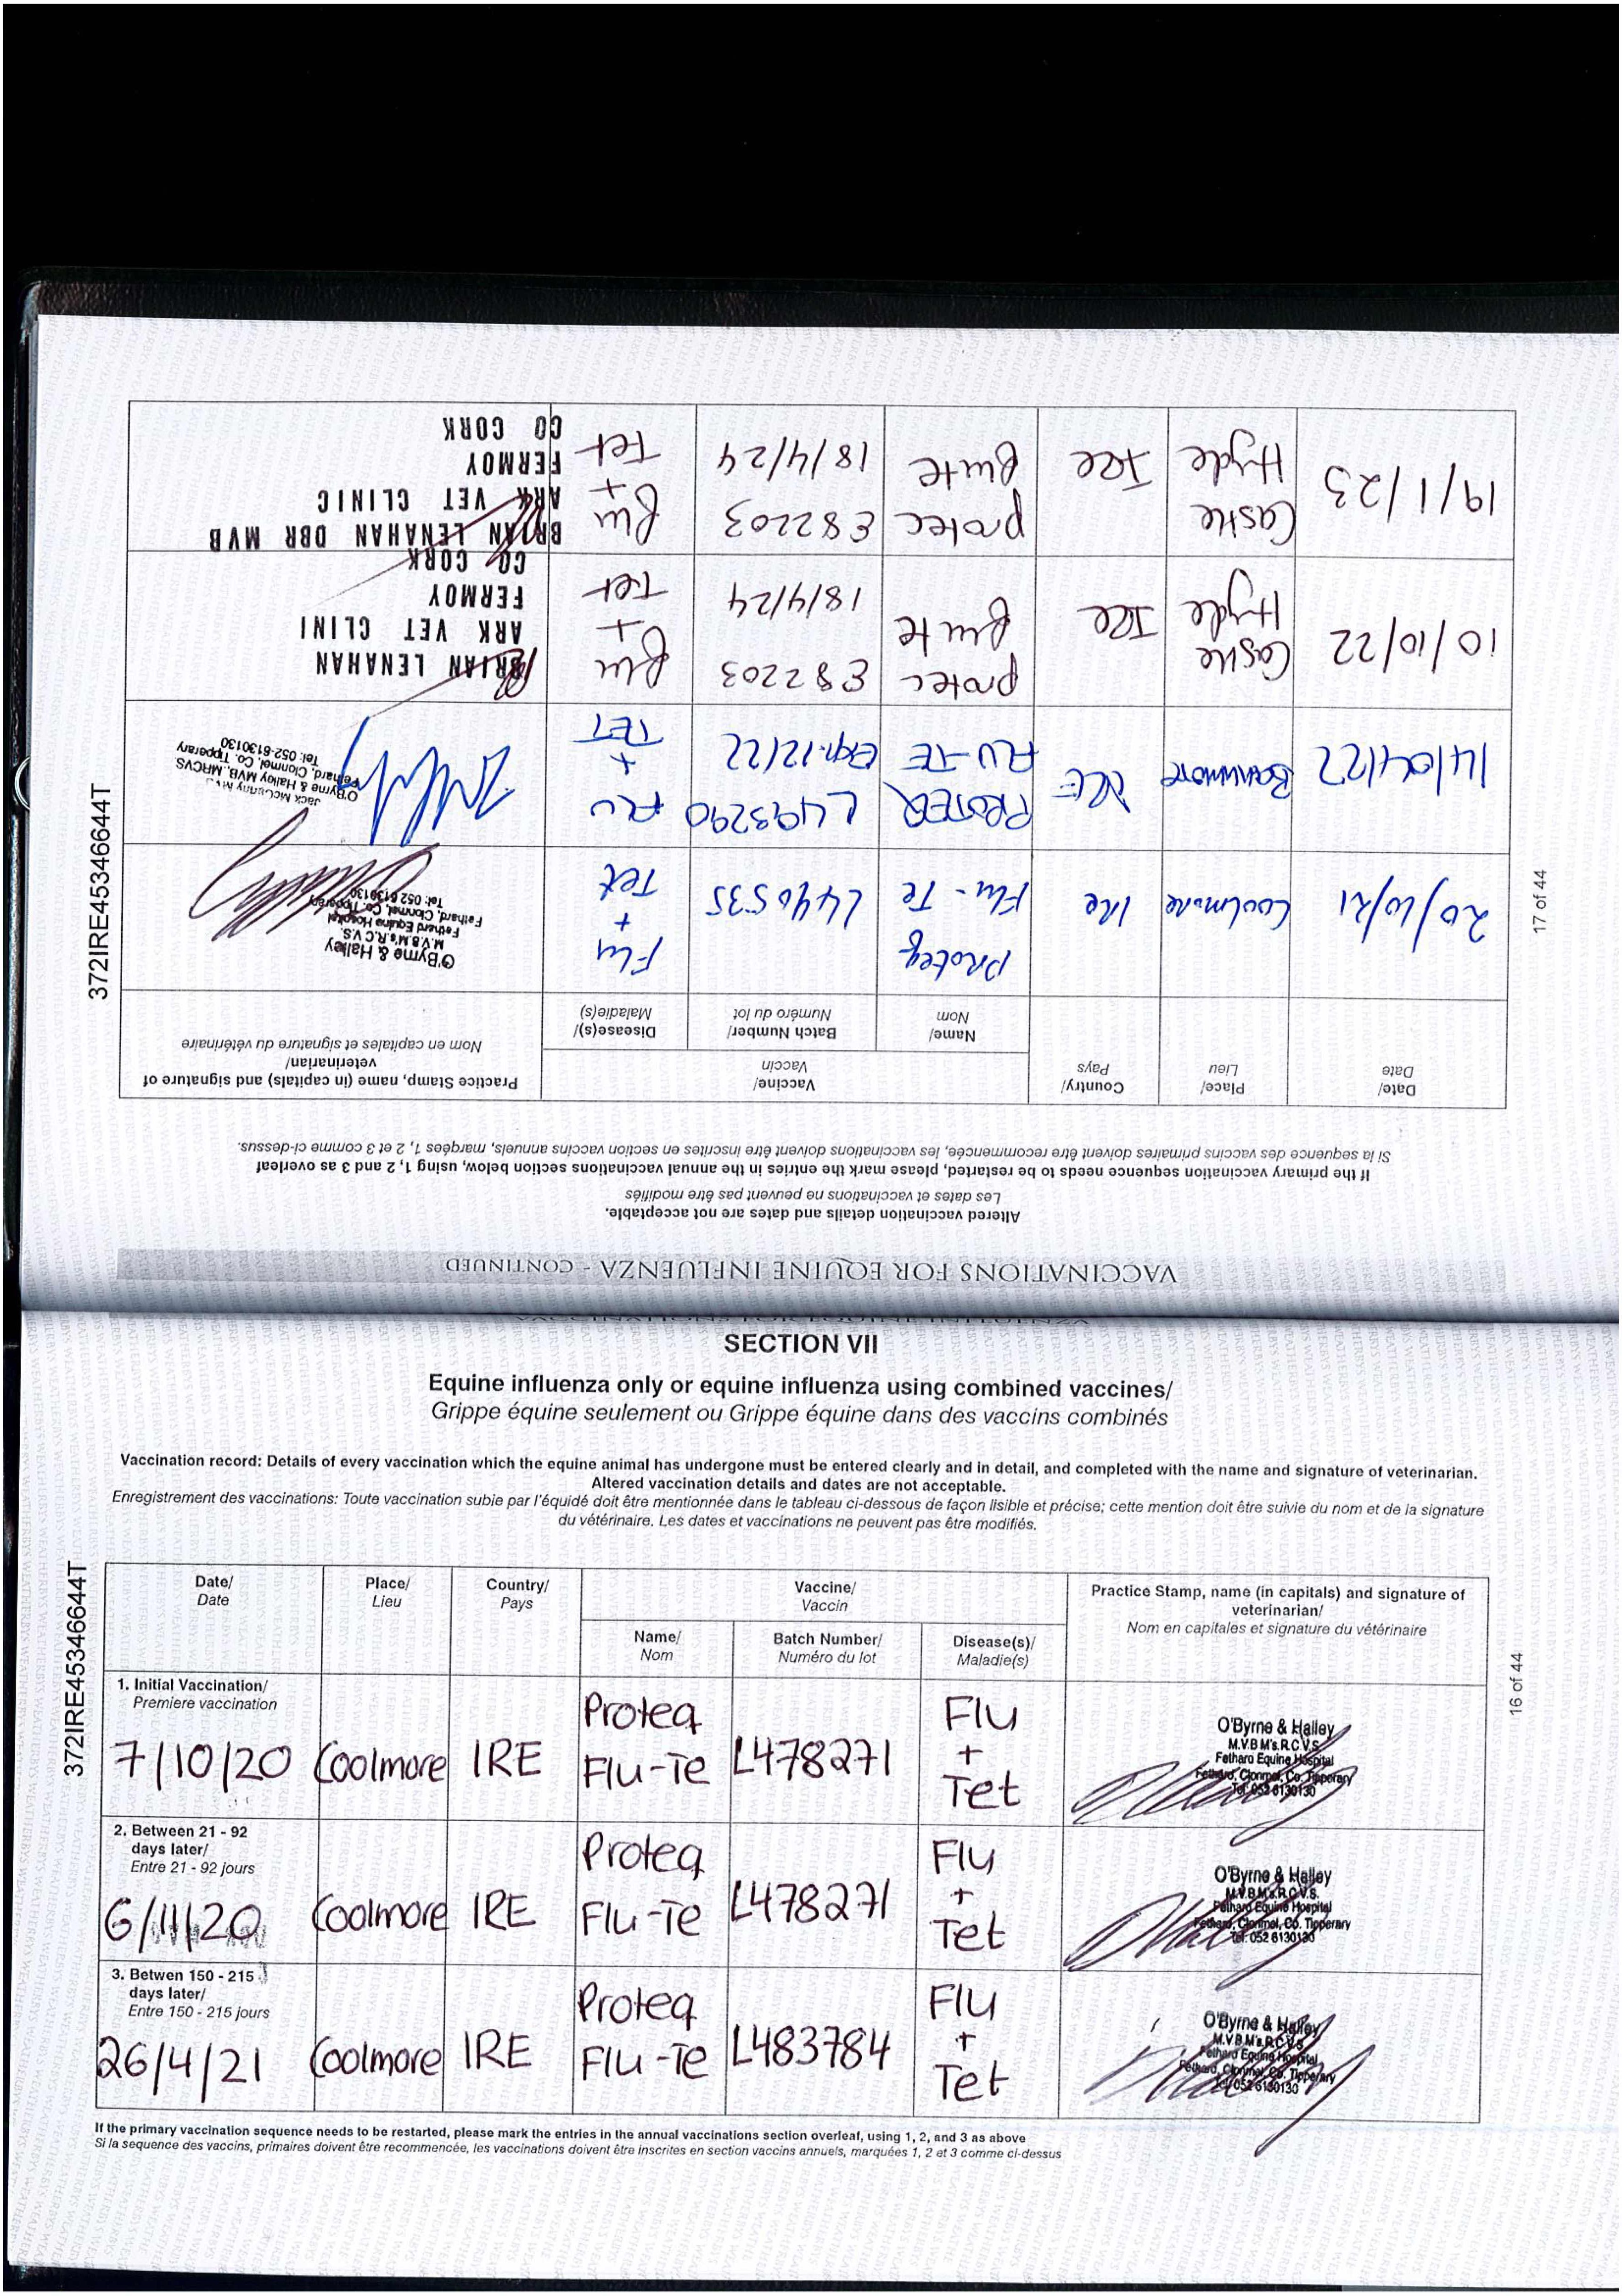 SECTION VII
Equine influenza only or equine influenza using combined vaccines/
Grippe équine seulement ou Grippe équine dans des vaccins combinés
Vaccination record: Details of every vaccination which the equine animal has undergone must be entered clearly and in detail, and completed with the name and signature of veterinarian.
Altered vaccination details and dates are not acceptable.
Enregistrement des vaccinations: Toute vaccination subie par l'équidé doit être mentionnée dans le tableau ci-dessous de façon lisible et précise; cette mention doit être suivie du nom et de la signature
du vétérinaire. Les dates et vaccinations ne peuvent pas être modifiés.
372IRE45346644T
16 of 44
Date/
Date
Place/
Lieu
Country/
Pays
Vaccine/
Vaccin
Name/
Nom
Batch Number/
Numéro du lot
Disease(s)/
Maladie(s)
Practice Stamp, name (in capitals) and signature of
veterinarian/
Nom en capitales et signature du vétérinaire
1. Initial Vaccination/
Premiere vaccination
7/10/20
Coolmore
IRE
Proteq
Flu-Te
L478271
Flu
+
Tet
O'Byrne & Halley
M.V.B M's.R.C.V.S.
Fethard Equine Hospital
Fethard, Clonmel, Co. Tipperary
Tel: 052 6130130
2. Between 21 - 92
days later/
Entre 21 - 92 jours
6/11/20
Coolmore
IRE
Proteq
Flu-Te
L478271
Flu
+
Tet
O'Byrne & Halley
M.V.B M's.R.C.V.S.
Fethard Equine Hospital
Fethard, Clonmel, Co. Tipperary
Tel: 052 6130130
3. Betwen 150 - 215
days later/
Entre 150 - 215 jours
26/4/21
Coolmore
IRE
Proteq
Flu-Te
L483784
Flu
+
Tet
O'Byrne & Halley
M.V.B M's.R.C.V.S.
Fethard Equine Hospital
Fethard, Clonmel, Co. Tipperary
Tel: 052 6130130
If the primary vaccination sequence needs to be restarted, please mark the entries in the annual vaccinations section overleaf, using 1, 2, and 3 as above
Si la sequence des vaccins, primaires doivent être recommencée, les vaccinations doivent être inscrites en section vaccins annuels, marquées 1, 2 et 3 comme ci-dessus
VACCINATIONS FOR EQUINE INFLUENZA - CONTINUED
Altered vaccination details and dates are not acceptable.
Les dates et vaccinations ne peuvent pas être modifiés
If the primary vaccination sequence needs to be restarted, please mark the entries in the annual vaccinations section below, using 1, 2 and 3 as overleaf
Si la sequence des vaccins primaires doivent être recommencée, les vaccinations doivent être inscrites en section vaccins annuels, marquées 1, 2 et 3 comme ci-dessus.
17 of 44
372IRE45346644T
Date/
Date
Place/
Lieu
Country/
Pays
Vaccine/
Vaccin
Name/
Nom
Batch Number/
Numéro du lot
Disease(s)/
Maladie(s)
Practice Stamp, name (in capitals) and signature of
veterinarian/
Nom en capitales et signature du vétérinaire
20/10/21
Coolmore
IRe
Proteq
Flu-Te
L490535
Flu
+
Tet
O'Byrne & Halley
M.V.B M's.R.C.V.S.
Fethard Equine Hospital
Fethard, Clonmel, Co. Tipperary
Tel: 052 6130130
14/04/22
IRE
PROTEQ
FLU-TE
L493290
Exp. 12/22
FLU
+
TET
O'Byrne & Halley MVB, MRCVS
Fethard, Clonmel, Co. Tipperary
Tel: 052-6130130
10/10/22
Castle
Hyde
Ire
protec
flu te
E82203
18/4/24
flu
+
Tet
BRIAN LENAHAN
ARK VET CLINI
FERMOY
CO CORK
19/1/23
Castle
Hyde
Ire
protec
flu te
E82203
18/4/24
flu
+
Tet
BRIAN LENAHAN DBR MVB
ARK VET CLINIC
FERMOY
CO CORK